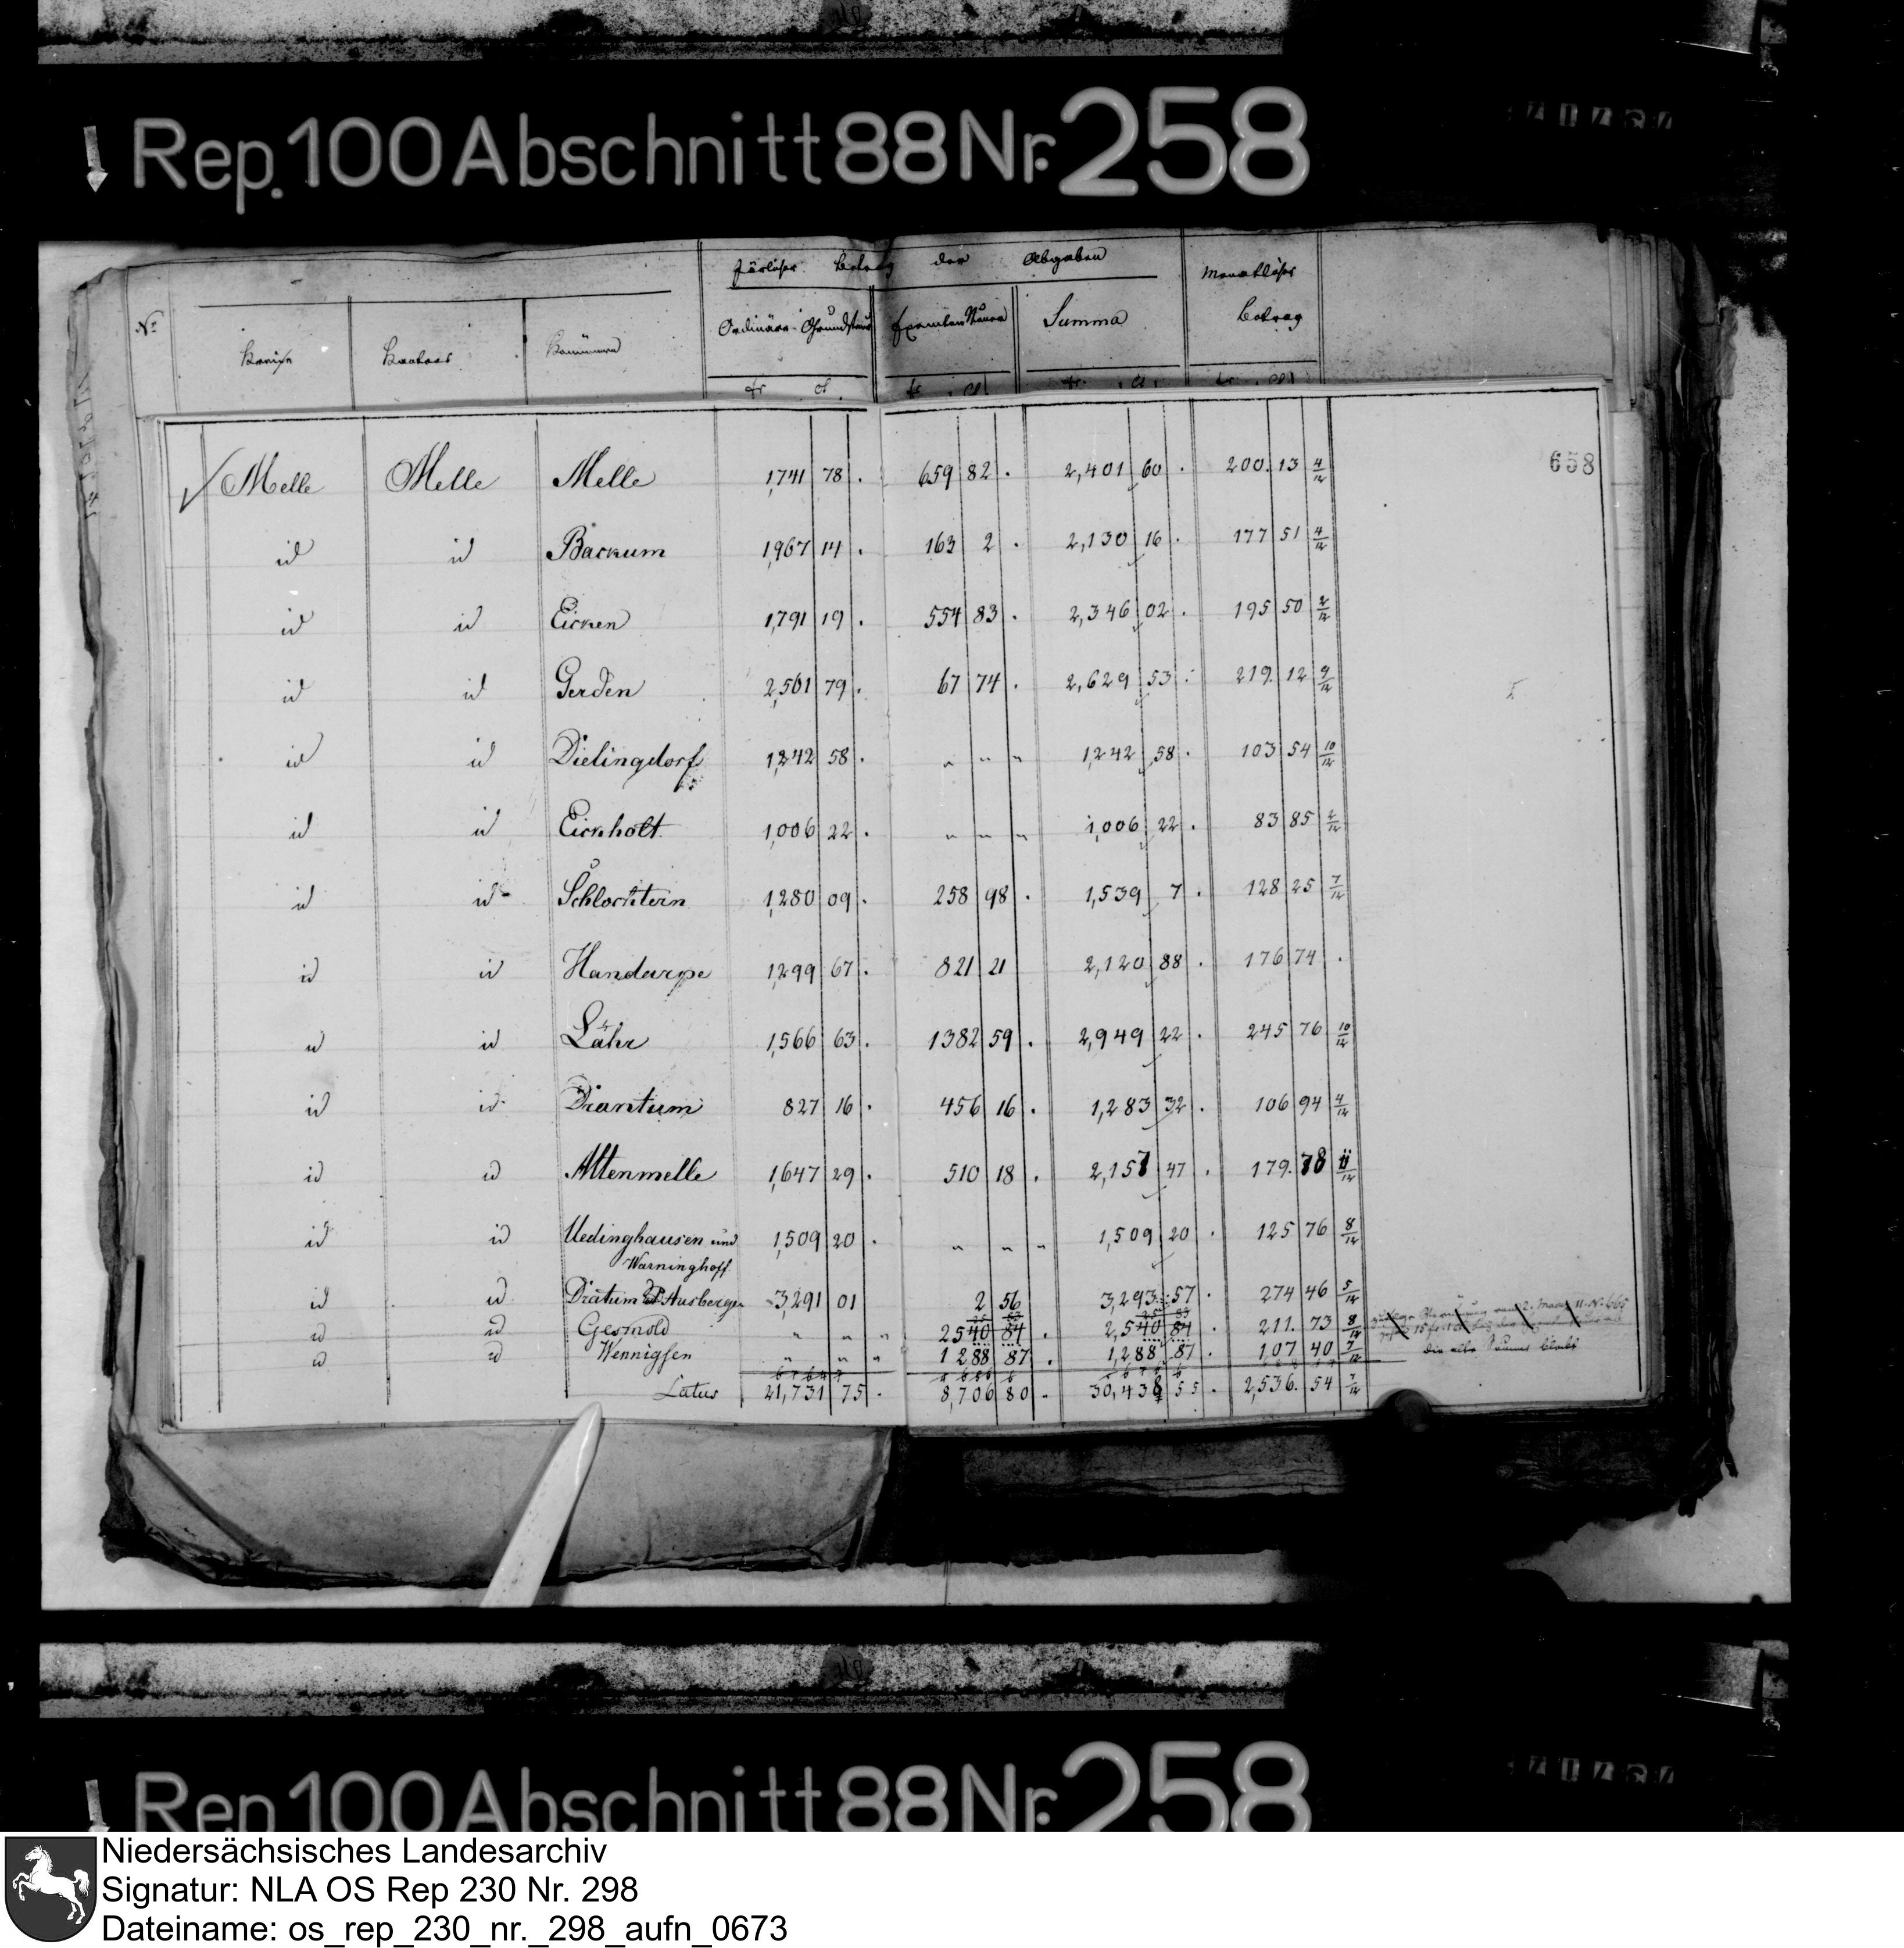 Rep. 100 Abschnitt 88 Nr. 258
Jährlicher Betrag der Abgaben
Monatlicher Betrag
No
Kreise Kantons Kommunen Ordinäre Grundsteuer Exemten Steuer Summa
fr. ct. fr. ct. fr. ct. fr. ct.
658
Melle Melle Melle 1,741 78 . 659 82 . 2,401 60 . 200. 13 4/12
id id Backum 1,967 14 . 163 2 . 2,130 16 . 177 51 4/12
id id Eicken 1,791 19 . 554 83 . 2,346 02 . 195 50 2/12
id id Gerden 2,561 79 . 67 74 . 2,629 53 . 219. 12 9/12
id id Dielingdorf 1,242 58 . " " " 1,242 58 . 103 54 10/12
id id Eickholt 1,006 22 . " " " 1,006 22 . 83 85 2/12
id id Schlochtern 1,280 09 . 258 98 . 1,539 7 . 128 25 7/12
id id Handarpe 1,299 67 . 821 21 2,120 88 . 176 74 .
id id Lähr 1,566 63 . 1382 59 . 2,949 22 . 245 76 10/12
id id Drantum 827 16 . 456 16 . 1,283 32 . 106 94 4/12
id id Altenmelle 1,647 29 . 510 18 . 2,157 47 . 179. 78 11/12
id id Uedinghausen und Warninghoff 1,509 20 . " " " 1,509 20 . 125 76 8/12
id id Dratum Ausbergen 3,291 01 2 56 3,293 57 . 274 46 5/12
id id Gesmold " " " 2540 84 . 2,540 84 . 211. 73 8/12
id id Wennigsen " " " 1288 87 . 1,288 87 . 107 40 7/12
die alte Summe bleibt
Latus 21,731 75 . 8,706 80 . 30,438 55 . 2,536. 54 7/12
Rep. 100 Abschnitt 88 Nr. 258
Niedersächsisches Landesarchiv
Signatur: NLA OS Rep 230 Nr. 298
Dateiname: os_rep_230_nr._298_aufn_0673